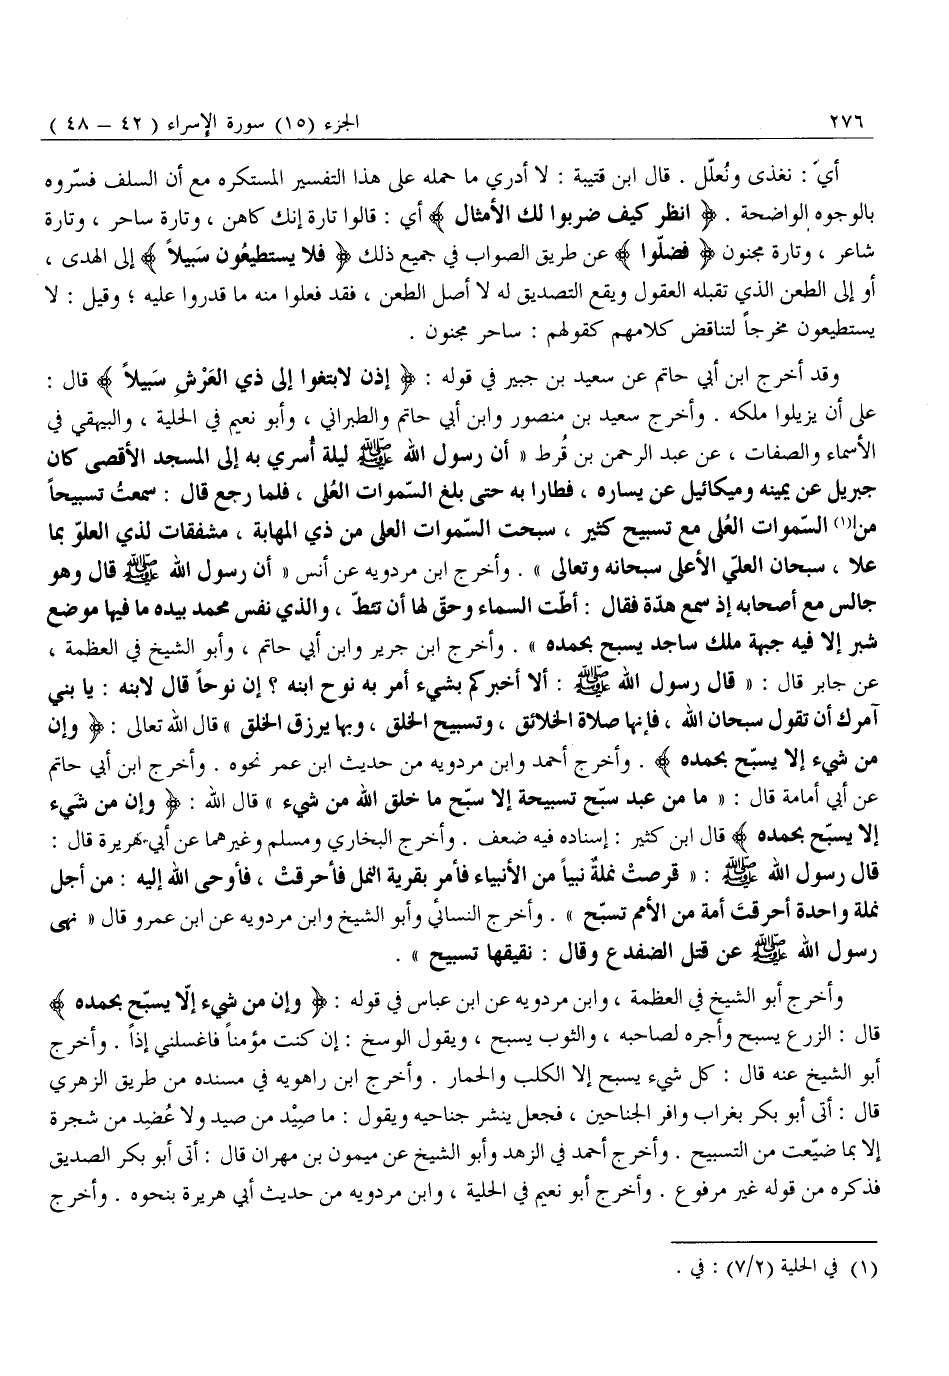 ٢٧٦ الجزء (١٥) سورة الإسراء ( ٤٢ – ٤٨ )
أي : نغذى ونُعلّل . قال ابن قتيبة : لا أدري ما حمله على هذا التفسير المستكره مع أن السلف فسّروه
بالوجوه الواضحة . ﴿ انظر كيف ضربوا لك الأمثال ﴾ أي : قالوا تارة إنك كاهن ، وتارة ساحر ، وتارة
شاعر ، وتارة مجنون ﴿ فضلّوا ﴾ عن طريق الصواب في جميع ذلك ﴿ فلا يستطيعُون سَبيلاً ﴾ إلى الهدى ،
أو إلى الطعن الذي تقبله العقول ويقع التصديق له لا أصل الطعن ، فقد فعلوا منه ما قدروا عليه ؛ وقيل : لا
يستطيعون مخرجاً لتناقض كلامهم كقولهم : ساحر مجنون .
وقد أخرج ابن أبي حاتم عن سعيد بن جبير في قوله : ﴿ إذن لابتغوا إلى ذي العَرْشِ سَبيلاً ﴾ قال :
على أن يزيلوا ملكه . وأخرج سعيد بن منصور وابن أبي حاتم والطبراني ، وأبو نعيم في الحلية ، والبيهقي في
الأسماء والصفات ، عن عبد الرحمن بن قُرط « أن رسول الله ﷺ ليلة أُسري به إلى المسجد الأقصى كان
جبريل عن يمينه وميكائيل عن يساره ، فطارا به حتى بلغ السّموات العُلى ، فلما رجع قال : سمعتُ تسبيحاً
من(١) السّموات العُلى مع تسبيح كثير ، سبحت السّموات العلى من ذي المهابة ، مشفقات لذي العلوّ بما
علا ، سبحان العليّ الأعلى سبحانه وتعالى » . وأخرج ابن مردويه عن أنس « أن رسول الله ﷺ قال وهو
جالس مع أصحابه إذ سمع هدّة فقال : أطّت السماء وحقّ لها أن تئطّ ، والذي نفس محمد بيده ما فيها موضع
شبر إلا فيه جبهة ملك ساجد يسبح بحمده » . وأخرج ابن جرير وابن أبي حاتم ، وأبو الشيخ في العظمة ،
عن جابر قال : « قال رسول الله ﷺ : ألا أخبركم بشيء أمر به نوح ابنه ؟ إن نوحاً قال لابنه : يا بني
آمرك أن تقول سبحان الله ، فإنها صلاة الخلائق ، وتسبيح الخلق ، وبها يرزق الخلق » قال الله تعالى : ﴿ وإن
من شيء إلا يسبّح بحمده ﴾ . وأخرج أحمد وابن مردويه من حديث ابن عمر نحوه . وأخرج ابن أبي حاتم
عن أبي أمامة قال : « ما من عبد سبّح تسبيحة إلا سبّح ما خلق الله من شيء » قال الله : ﴿ وإن من شَيء
إلا يسبّح بحمده ﴾ قال ابن كثير : إسناده فيه ضعف . وأخرج البخاري ومسلم وغيرهما عن أبي هريرة قال :
قال رسول الله ﷺ : « قرصتْ نملةٌ نبياً من الأنبياء فأمر بقرية النمل فأحرقتْ ، فأوحى الله إليه : من أجل
نملة واحدة أحرقتَ أمة من الأمم تسبّح » . وأخرج النسائي وأبو الشيخ وابن مردويه عن ابن عمرو قال « نهى
رسول الله ﷺ عن قتل الضفدع وقال : نقيقها تسبيح » .
وأخرج أبو الشيخ في العظمة ، وابن مردويه عن ابن عباس في قوله : ﴿ وإن من شيء إلّا يسبّح بحمده ﴾
قال : الزرع يسبح وأجره لصاحبه ، والثوب يسبح ، ويقول الوسخ : إن كنت مؤمناً فاغسلني إذاً . وأخرج
أبو الشيخ عنه قال : كل شيء يسبح إلا الكلب والحمار . وأخرج ابن راهويه في مسنده من طريق الزهري
قال : أتى أبو بكر بغراب وافر الجناحين ، فجعل ينشر جناحيه ويقول : ما صِيْد من صيد ولا عُضِد من شجرة
إلا بما ضيّعت من التسبيح . وأخرج أحمد في الزهد وأبو الشيخ عن ميمون بن مهران قال : أتى أبو بكر الصديق
فذكره من قوله غير مرفوع . وأخرج أبو نعيم في الحلية ، وابن مردويه من حديث أبي هريرة بنحوه . وأخرج
(١) في الحلية (٧/٢) : في .